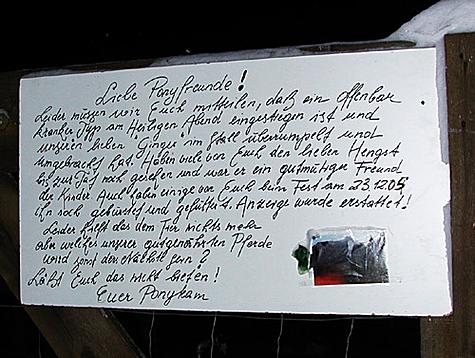 Liebe Ponyfreunde!
Leider müssen wir Euch mitteilen, daß ein offenbar
kranker Typ am Heiligen Abend eingestiegen ist und
unseren lieben Ginger im Stall überrumpelt und
umgebracht hat. Haben viele von Euch den lieben Hengst
bis zur noch gesehen und war er ein gutmütiger Freund
der Kinder. Auch haben einige von Euch beim Fest am 23.12.05
ihn noch gebürstet und gefüttert. Anzeige wurde erstattet!
Leider hilft das dem Tier nichts mehr
aber welcher unserer gutgenährten Pferde
wird sonst der Nächste sein?
Laßt Euch das nicht bieten!
Euer Ponykam